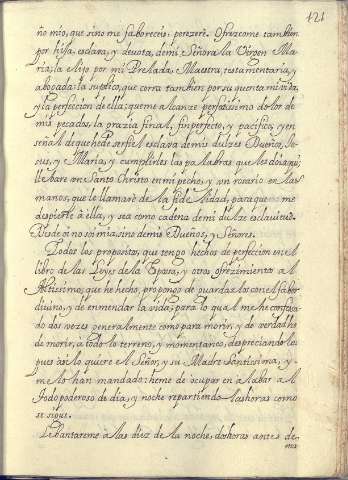 121
ño mio, que sino me faboreceis, perezeré. Ofrezcome tambien
por hija, esclaba, y devota, de mi Señora la Virgen Ma
ria; la elijo por mi Prelada, Maestra, testamentaria, y
abogada; la suplico, que corra tambien por su quenta mi vida,
y la perfeccion de ella; que me alcanze perfetissimo dolor de
mis pecados, la grazia final, fin perfecto, y pacifico, y en
señal de que he de ser fiel esclaba de mis dulzes Dueños, Je-
sus, y Maria, y cumplirles las palabras que les doi aqui;
llebare un Santo Christo en mi pecho, y un rosario en las
manos, que le llamaré de la fidelidad, para que me
despierte à ella, y sea como cadena de mi dulze esclavitud.
Desde oi no soi mia, sino de mis Dueños, y Señores.
Todos los propositos, que tengo hechos de perfeccion en el
libro de las Leyes de la Esposa, y otros ofrezimientos al
Altissimo, que he hecho, propongo de guardarlos con el fabor
divino, y de enmendar la vida, para lo qual me he confesa
do dos vezes generalmente como para morir, y de verdad he
de morir, a todo lo terreno, y momentaneo, despreciandolo,
pues asi lo quiere el Señor, y su Madre Santissima, y
me lo han mandado: heme de ocupar en alabar al
Todo poderoso de dia, y noche repartiendo las horas como
se sigue.
Lebantareme a las diez de la noche, dos horas antes de
mai